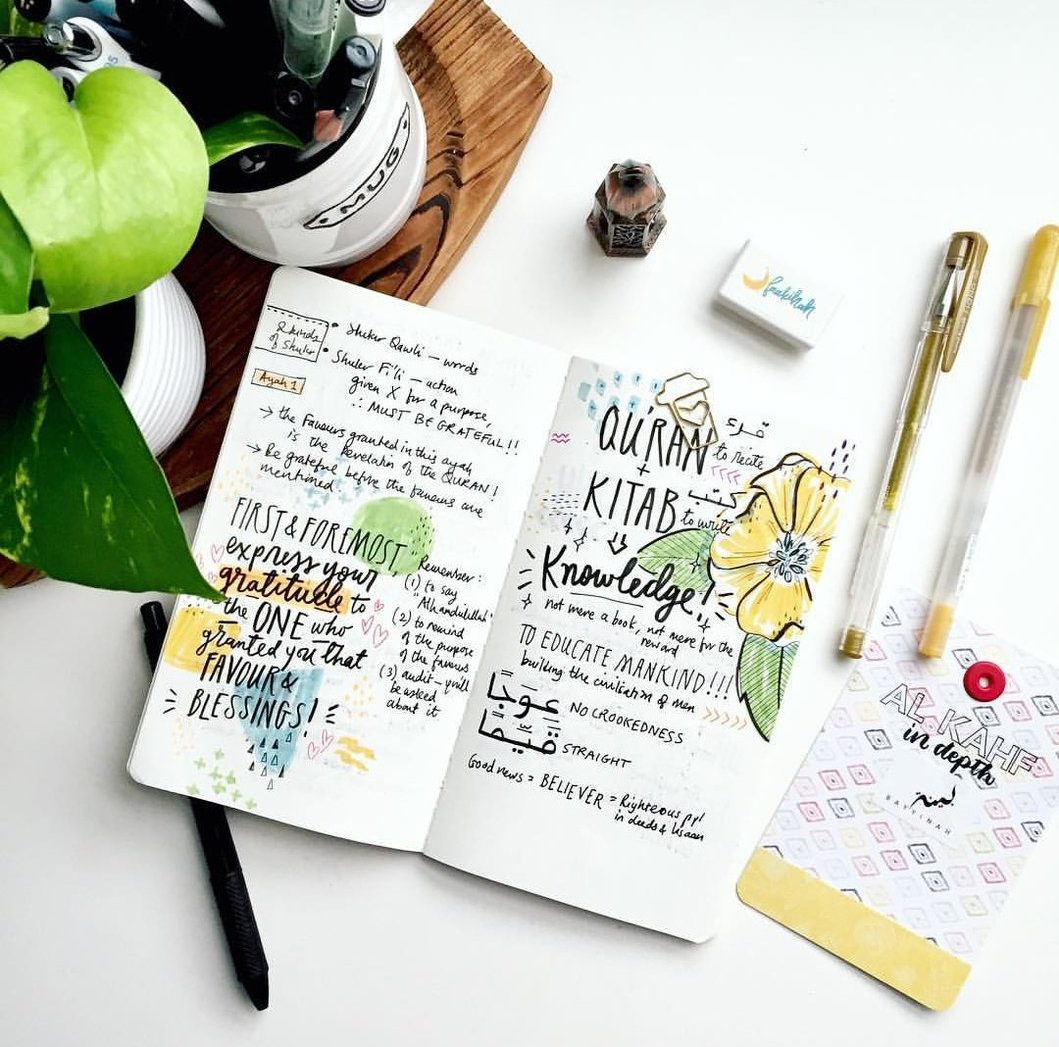 MUG
2 kinds
of Shukr
• Shukr Qawli — words
• Shukr Fi'li — action
given X for a purpose,
∴ MUST BE GRATEFUL!!
Ayah 1
→ the Favours granted in this ayah
is the Revelation of the QURAN!
→ Be grateful before the favours are
mentioned
FIRST & FOREMOST,
express your
gratitude to
the ONE who
granted you that
FAVOUR &
BLESSINGS!
Remember:
(1) to say
"Alhamdulillah"
(2) to remind
of the purpose
of the favours
(3) audit — you'll
be asked
about it
QURAN
قرء
to recite
+
KITAB
to write
Knowledge!
not mere a book, not mere for the
reward
TO EDUCATE MANKIND!!!
building the civilisation of men
عوجا NO CROOKEDNESS
قيما STRAIGHT
Good news = BELIEVER = Righteous ppl
in deeds &
faakihah
AL KAHF
in depth
بينة
BAYYINAH